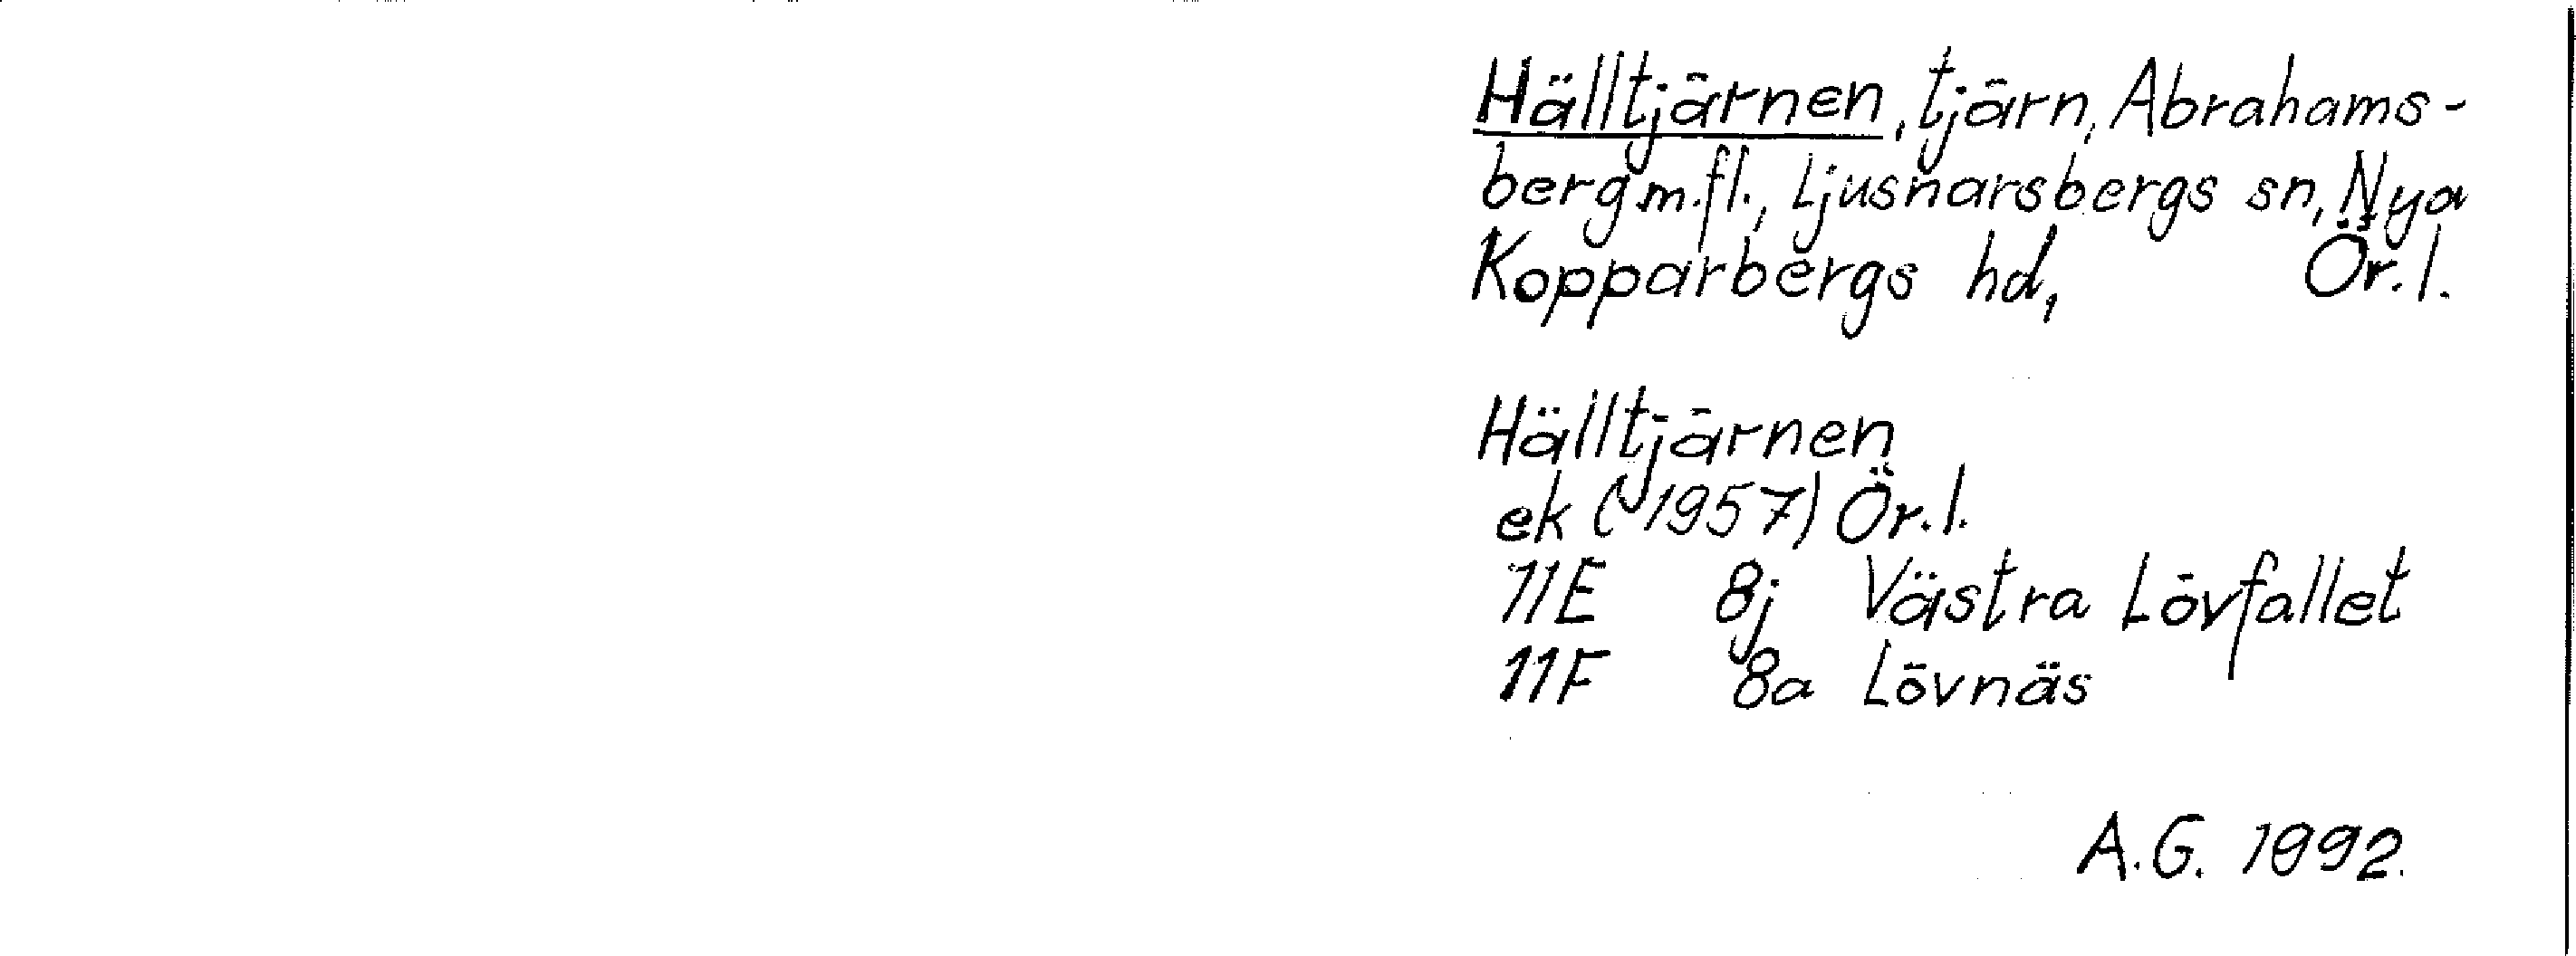 Hälltjärnen, tjärn, Abrahams-
berg m.fl., Ljusnarsbergs sn, Nya
Kopparbergs hd, Ör.l.
Hälltjärnen
ek (1957) Ör.l.
11E 8j Västra Lövfallet
11F 8a Lövnäs
A.G. 1992.